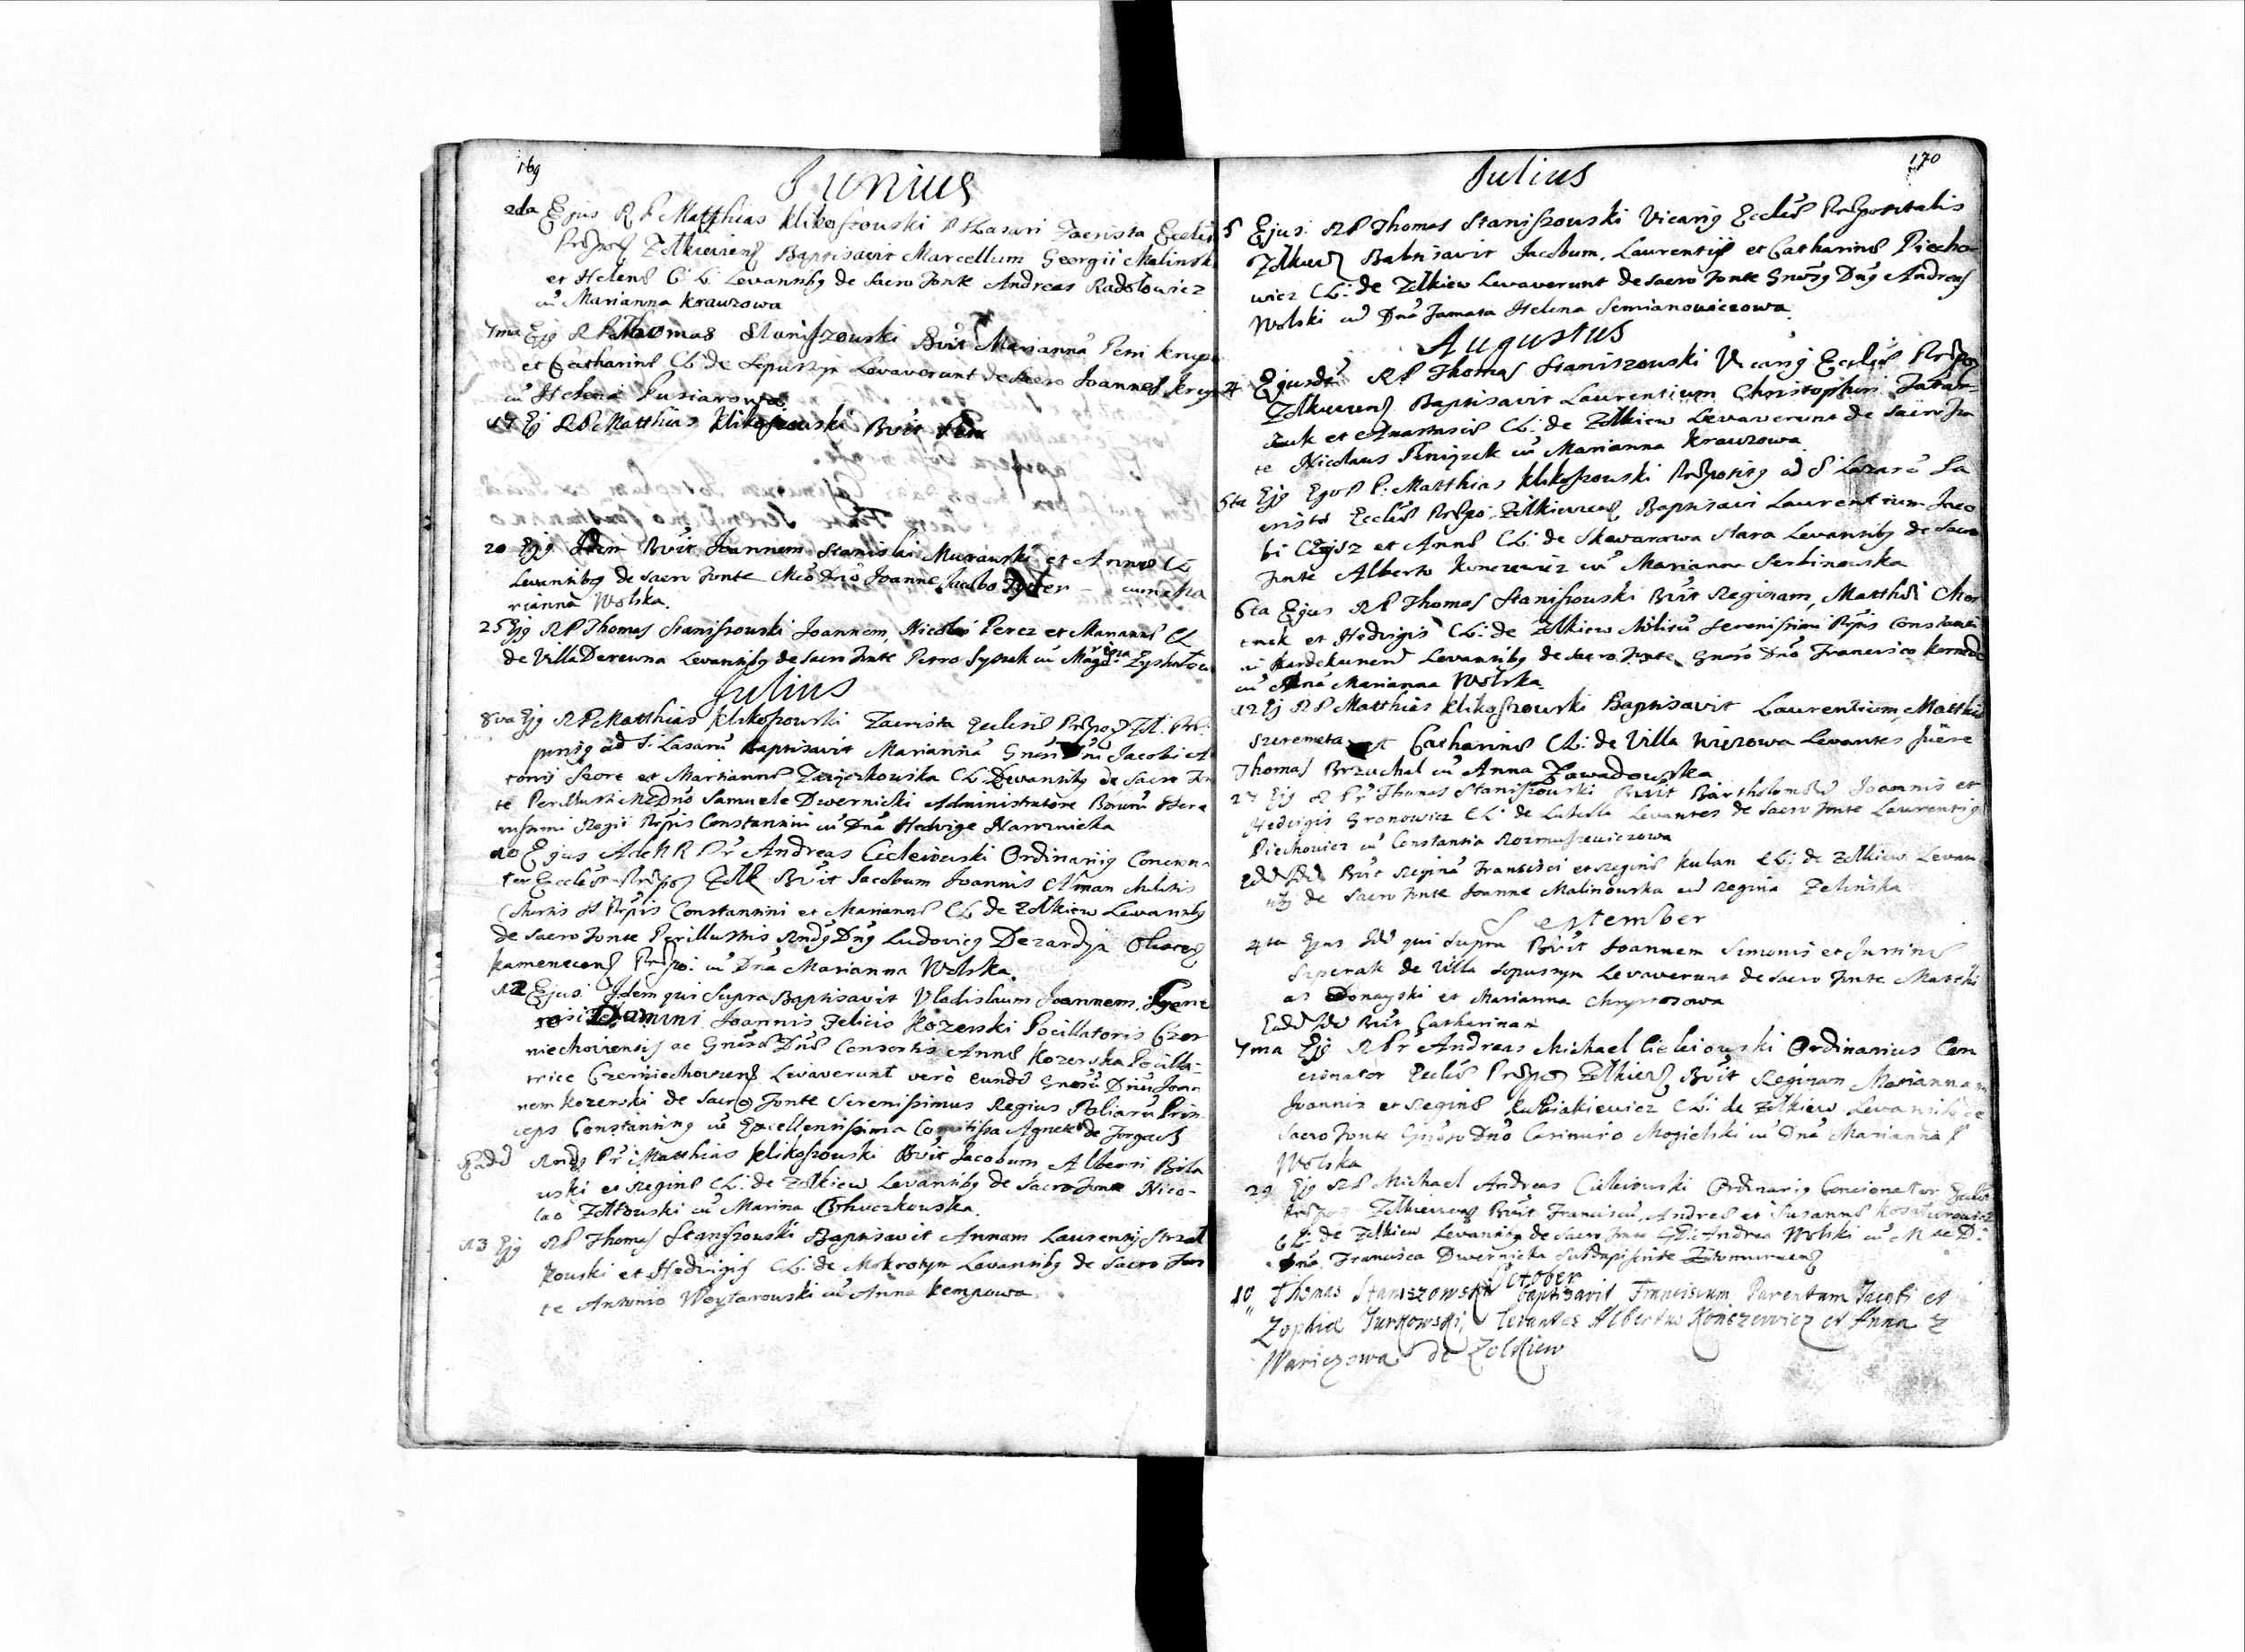 169
Junius
2da Ejus R P Matthias Klikoszowski S Lasari Zacrista Eccliæ
Præpos Zolkiewiens Baptisavit Marcellum Georgii Malinsk
et Helenæ C: L: Levantibus de Sacro Fonte Andreas Radolowicz
cū Marianna Krawzowa
7ma Ejus R P Thomas Staniszowski Bvit Mariannā Petri Krup
et Catharinæ CL: de Sopuszyn Levaverunt de Sacro Joannes Krup
cū Helena
17 Ej R P Matthias Klikoszowski Bvit
20 Ejus Idem Bvit Joannem Stanislai Murawski et Annæ CL
Levantibus de Sacro Fonte Mco Dno Joanne Jacobo Fyter – cum Ma
rianna Wolska.
25 Ejus R P Thomas Staniszowski Joannem, Nicolai Perez et Mariannæ CL
de Villa Derewna Levantibus de Sacro Fonte Petro Sypak cū
Julius
8va Ejus R P Matthias Klikoszowski Zacrista Ecclesiæ Præpos Zol. Præ-
positus ad S. Lasarū Baptisavit Mariannā Gnesi Dni Jacobi et
toris Skore et Mariannæ Zajączkowska CL: Levantibus de Sacro Fon
te Perillustri MD Dno Samuele Dwernicki Administratore Bonorū Sere
nissimi Regii Ppis Constantini cū Dnā Hedvige Naroznicka
10 Ejus AdeRR Pr Andreas Cielewuski Ordinariis Conciona
tor Ecclesiæ Præpos Zolk Bvit Jacobum Joannis Nman Militis
Cohortis S Ppis Constantini et Mariannæ CL de Zolkiew Levantibus
de Sacro Fonte Perillustris Rndus Dnus Ludovicus Dezardyn
Kamenecens Præpo: cū Dnā Marianna Wolska.
12 Ejus: Idem qui supra Baptisavit Vladislaum Joannem, Gene
rosi Domini Joannis Felicis Kozerski Pocillatoris Czer
niechoviensis ac Gnosæ Dnæ Consortis Annæ Kozerska Pocilla-
trice Czerniechoviens Levaverunt verò eundē Gnosū Dnū Joan
nem Kozerski de Sacro Fonte Serenissimus Regius Poliarū Prin
ceps Constantinus cū Excellentissima Comitissa Agnete de Forgacs
Eadē Rndus Pr Matthias Klikoszowski Bvit Jacobum Alberti Bila
uski et Reginæ CL: de Zolkiew Levantibus de Sacro Fonte Nico-
lao Zoltowski cū Marina Bohuczkowska.
13 Ejus R P Thomas Staniszowski Baptisavit Annam Laurentii Strzał
kouski et Hedvigis CL: de Mokrotyn Levantibus de Sacro Fon
te Antonio Woytarouski cū Anna Kempowa.
170
Julius
5 Ejus: R P Thomas Staniszowski Vicarius Eccliæ Præpositalis
Zolkiew Babtisavit Jacobum, Laurentii et Catharinæ Piecho
wicz CL: de Zolkiew Levaverunt de Sacro Fonte Gnosus Dnus Andreas
Wolski cū Dnā Famata Helena Semianowiczowa.
Augustus
4 Ejusdē R P Thomas Staniszowski Vicarius Eccliæ Præpos
Zolkiewiens Baptisavit Laurentium Christophori Tatar-
czuk et Anastasiæ CL: de Zolkiew Levaverunt de Sacro Fon
te Nicolaus Pieniązek cū Marianna Krawzowa
5ta Ejus Ego P: Matthias Klikoszowski Præpositus ad S Lazarū Sa
crista Eccliæ Præpo: Zolkiewiens Baptisavi Laurentium Jaco
bi et Annæ CL: de Skwarzowa Stara Levantibus de Sacro
Fonte Alberto Konczewicz cū Marianna Serbinowska
6ta Ejus R P Thomas Staniszowski Bvit Reginam, Matthiæ
et Hedvigis CL: de Zolkiew Militū Serenissimi Ppis Constanti
ni Levantibus de Sacro Fonte Gnoso Dno Francisco
cū Dna Marianna Wolska
12 Ej R P Matthias Klikoszowski Baptisavit Laurentium, Matthiæ
Szeremeta et Catharinæ CL: de Villa Wiezowa Levantes fuere
Thomas Brzuchal cū Anna Zawadowska
27 Ejus R Pr Thomas Staniszowski Bvit Bartholomeū Joannis et
Hedvigis Gronowicz CL: de Lubella Levantes de Sacro Fonte Laurentius
Piechowicz cū Constantia Rozmuszewiczowa
Eadē Idē Bvit Reginā Francisci et Reginæ Kulan CL: de Zolkiew Levan
tibus de Sacro Fonte Joanne Malinowska cū Regina Zelinska
September
4ta Ejus Idē qui supra Bvit Joannem Simonis et Justinæ
Szperak de Villa Sopuszyn Levaverunt de Sacro Fonte Matthi
as Donayski et Marianna Chryptosowa
Eadē Idē Bvit Catharinam
7ma Ejus R Pr Andreas Michael Cielewouski Ordinarius Con
cionator Eccliæ Præpos Zolkiews Bvit Reginam Mariannam
Joannis et Reginæ Kubiakiewicz CL: de Zolkiew Levantibus de
Sacro Fonte Gnoso Dno Casimiro Mogielski cū Dnā Marianna
Wolska
29 Ejus R P Michael Andreas Cielewouski Ordinarius Concionator Eccliæ
Præpos Zolkiewiens Bvit Franciscū, Andreæ et Susannæ
CL: de Zolkiew Levantibus de Sacro Fonte GD: Andrea Wolski cū M ac D:
Dnā Francisca Dwernicka
October
10 Thomas Staniszowski baptisavit Franciscum Parentum Jacobi et
Zophiæ Jurkowski, levantes Albertus Kończewicz et Anna Z
Wariczowa de Zolkiew